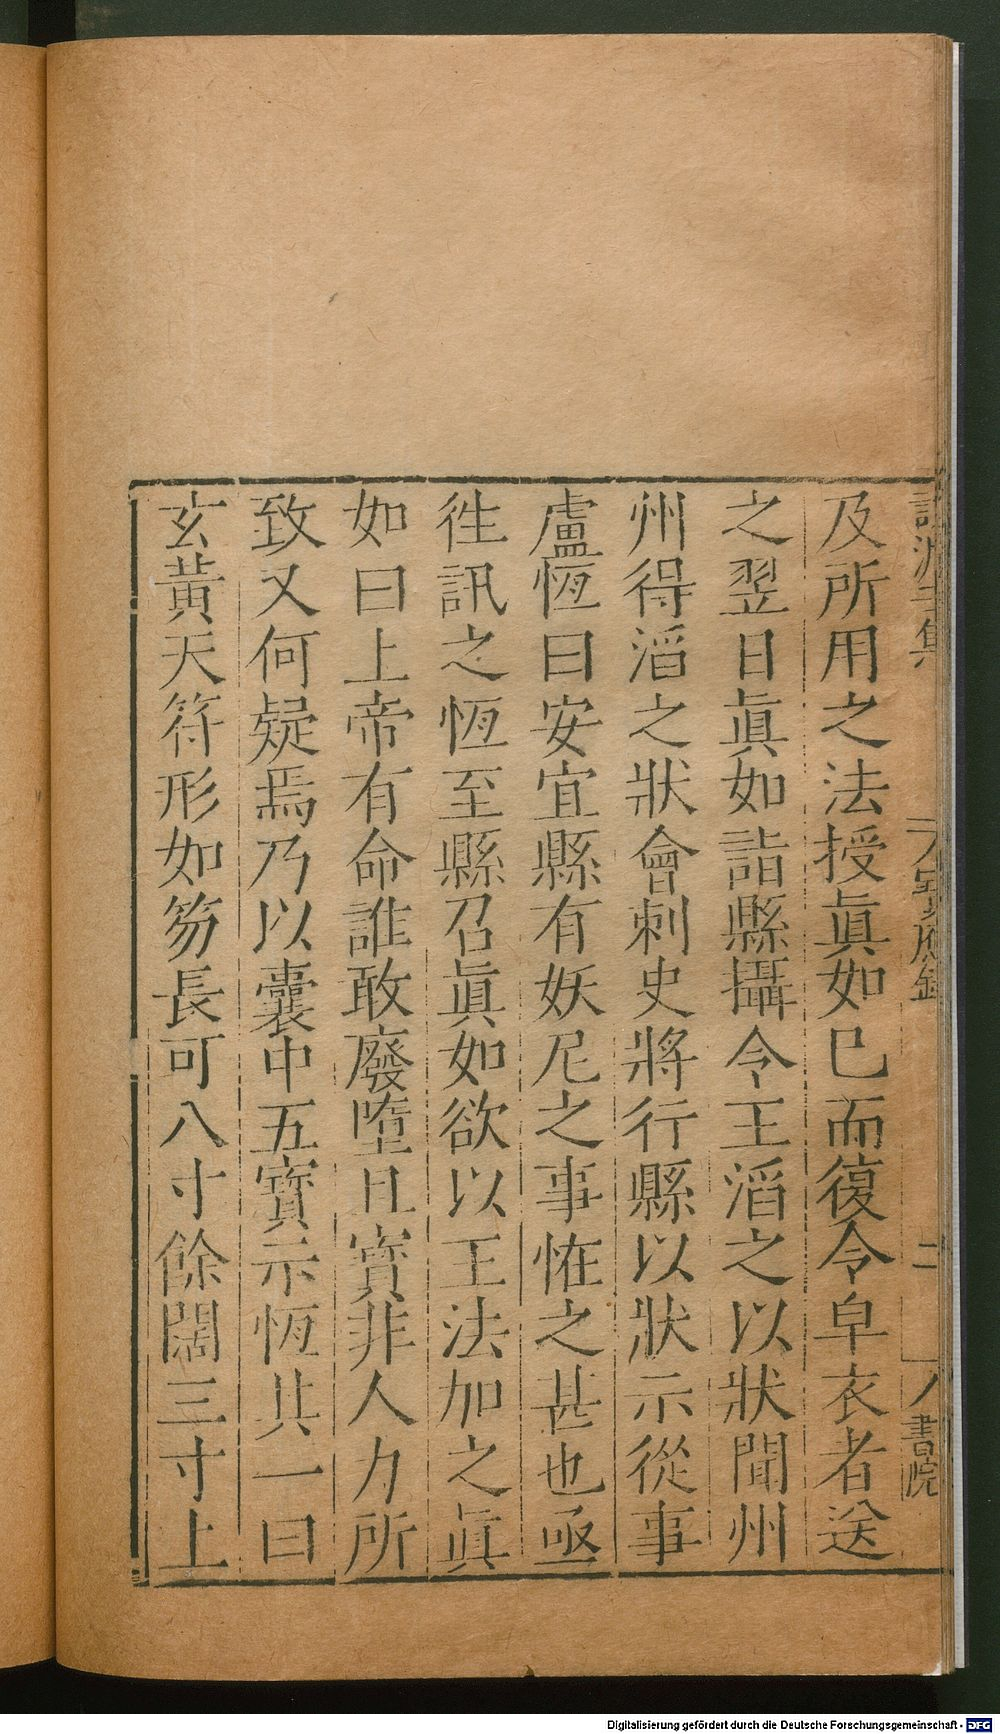 及所用之法授眞如已而復令皁衣者送
之翌日眞如詣縣攝令王滔之以狀聞州
州得滔之狀會刺史將行縣以狀示從事
盧恆曰安宜縣有妖尼之事恠之甚也亟
徃訊之恆至縣召眞如欲以王法加之眞
如曰上帝有命誰敢廢墮且寶非人力所
致又何疑焉乃以囊中五寶示恆其一曰
玄黃天符形如笏長可八寸餘闊三寸上
二
書院
Digitalisierung gefördert durch die Deutsche Forschungsgemeinschaft - DFG